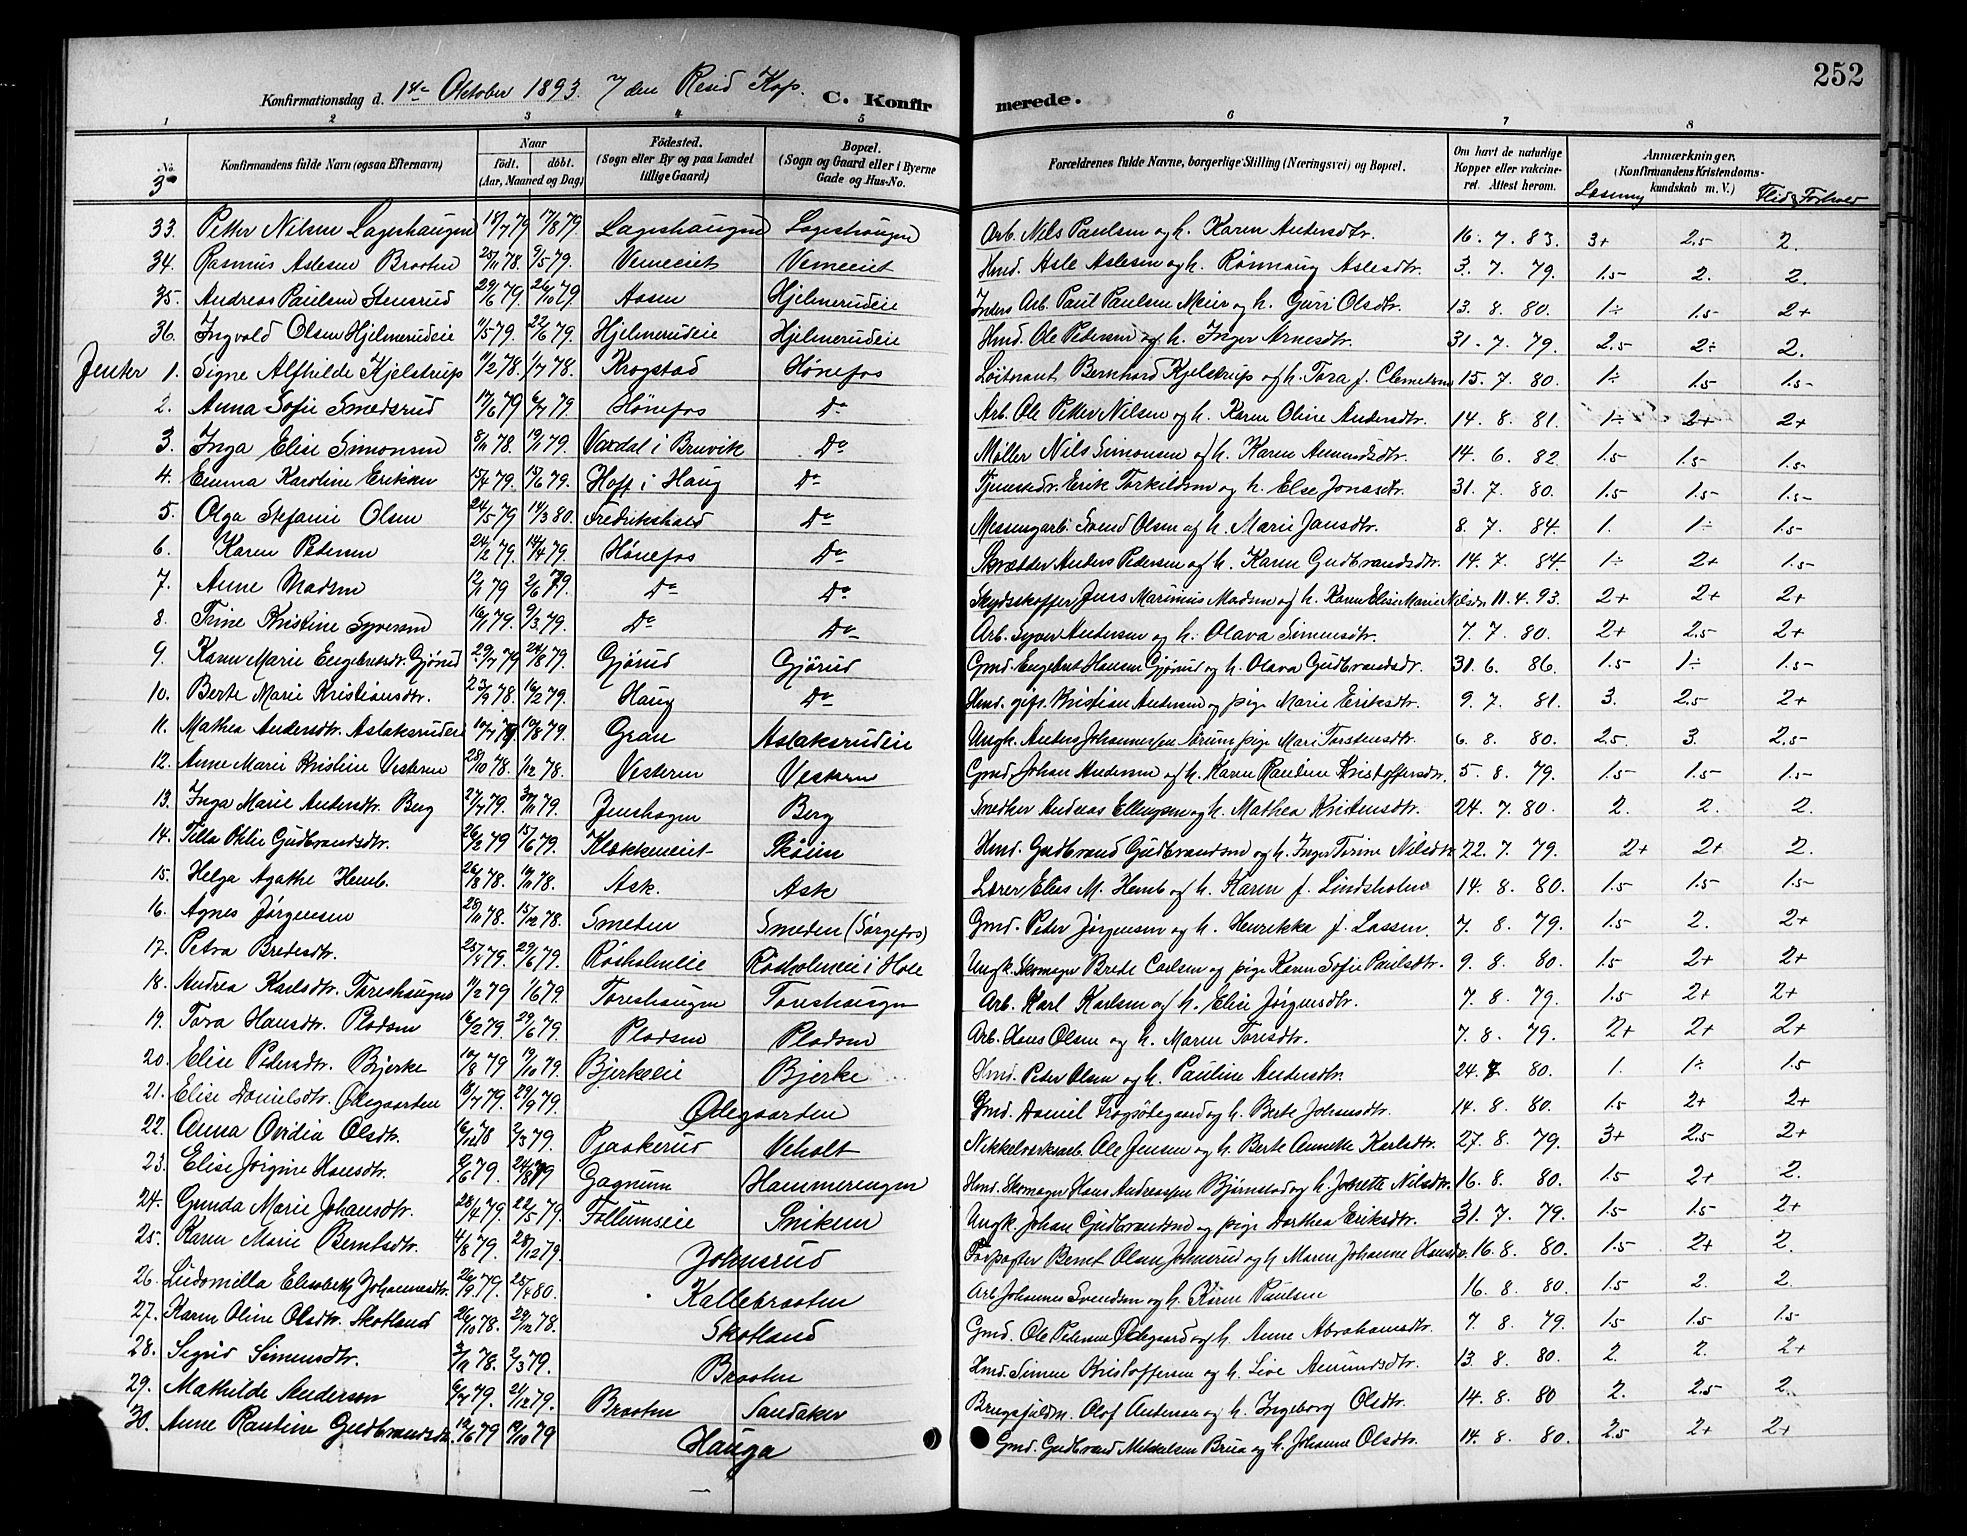 252
Konfirmationsdag d. 1ste Oktober 1893. 7 den Resid Kap. C. Konfir merede.
1 2 3 4 5 6 7 8
No. Konfirmandens fulde Navn (ogsaa Efternavn) Naar født. døbt. (Aar, Maaned og Dag) Fødested. (Sogn eller By og paa Landet tillige Gaard) Bopæl. (Sogn og Gaard eller i Byerne Gade og Hus-No. Forældrenes fulde Navne, borgerlige Stilling (Næringsvei) og Bopæl. Om havt de naturlige Kopper eller vakcineret. Attest herom. Anmærkninger. (Konfirmandens Kristendomskundskab m. V.)
Læsning Flid & Forhold
33. Petter Nilsen Lageshaugen 79 17/8 79. Lageshaugen Lageshaugen Arb. Nils Paulsen og h. Karen Andersdtr. 16. 7. 83. 3+ 2.5 2.
34. Rasmus Aslesen Braaten 25/11 78. 9/5 79. Hmd. Asle Aslesen og h. Rønnaug Aslesdtr. 3. 7. 79. 1.5 2. 2.
35. Andreas Paulsen Stensrud 29/6 79. 26/10 79. Aasen Hjelmerudeie Inders Arb. Paul Paulsen Meier og h. Guri Olsdtr. 13. 8. 80. 1÷ 1.5 2+
36. Ingvold Olsen Hjelmerudeie 11/5 79. 22/6 79. Hjelmerudeie Hjelmerudeie Hmd. Ole Pedersen og h. Inger Arnesdtr. 31. 7. 79. 2.5 2÷ 2.
Jenter 1. Signe Alfhilde Kjelstrup 11/2 78. 1/7 78. Krogstad Hønefos Løitnant Bernhard Kjelstrup og h. Tora f. Clemetsen 15. 7. 80. 1÷ 1.5 1.5
2. Anna Sofie Smedsrud 17/6 79 6/7 79. Hønefos Do Arb. Ole Petter Nilsen og h. Karen Oline Andersdtr. 14. 8. 81. 1÷ 2+ 2+
3. Inga Elise Simonsen 8/11 78. 19/1 79. Vaxdal i Bruvik Do Møller Nils Simonsen og h. Karen Amundsdtr. 14. 6. 82. 1.5 1.5 1.5
4. Emma Karoline Eriksen 15/4 79. 15/6 79. Hoff i Haug Do Tjenestdr. Erik Torkildsen og h. Else Jonasdtr. 31. 7. 80. 1.5 1.5 1.5
5. Olga Stefanie Olsen 24/5 79 14/3 80. Fredrikshald Do Messingarb. Svend Olsen og h. Marie Jansdtr. 8. 7. 84. 1. 1÷ 1.5
6. Karen Pedersen 24/2 79. 14/4 79. Hønefos Do Skrædder Anders Pedersen og h. Karen Gudbrandsdtr. 14. 7. 84. 1÷ 2+ 1.5
7. Anne Madsen 12/1 79 2/6 79. Do Do Skydsskaffer Jens Marinius Madsen og h. Karen Elise Marie Nilsdtr 11. 4. 93. 2+ 2+ 2+
8. Trine Kristine Syversen 16/1 79. 9/3 79. Do Do Arb. Syver Andersen og h. Olava Simensdtr. 7. 7. 80. 2+ 2.5 2+
9. Karen Marie Engebretsdtr. Gjørud 29/7 79 24/8 79. Gjørud Gjørud Gmd. Engebret Hansen Gjørud og h. Olava Gudbrandsdtr. 31. 6. 86. 1.5 1÷ 1.5
10. Berte Marie Kristiansdtr. 23/9 78. 16/2 79. Haug Do Hmd. gift. Kristian Andersen og pige Marie Eriksdtr. 9. 7. 81. 3. 2.5 2+
11. Mathea Andersdtr. Aslaksrudeie 10/7 79. 10/8 79. Gran Aslaksrudeie Ungk. Anders Johannessen Sørum, pige Mari Torstensdtr. 6. 8. 80. 2.5. 3. 2.5
12. Anne Marie Kristine Vesteren 28/10 78. 1/12 78. Vesteren Vestern Gmd. Johan Andersen og h. Karen Pauline Kristoffersdtr. 5. 8. 79. 1.5 1.5 1.5
13. Inga Marie Andersdtr. Berg 27/7 79. 79. Jenshagen Berg Snedker Andreas Ellingsen og h. Mathea Kristensdtr. 24. 7. 80. 2. 2. 2.
14. Tilla Othlie Gudbrandsdtr. 26/2 79 15/6 79. Klækkeneiet Skøien Hmd. Gudbrand Gudbrandsen og h. Inger Trine Nilsdtr. 22. 7. 79. 2+ 2+ 2.
15. Helga Agathe Hemb. 26/8 78. 10/11 78. Ask. Ask Lærer Elias M. Hemb og h. Karen f. Lindsholm 14. 8. 80. 1.5 1.5 1.5
16. Agnes Jørgensen 28/11 78. 15/12 78. Smeden Smeden (Sørgefos) Gmd. Peder Jørgensen og h. Henrikka f. Lassen. 7. 8. 79. 1.5 2. 2+
17. Petra Bredesdtr. 79. 29/6 79. Røsholmeie Røsholmeie i Hole Ungk. Skomager Brede Carlsen og pige Karen Sofie Paulsdtr. 9. 8. 80. 1.5 2+ 2+
18. Andrea Karlsdtr. Toreshaugen 11/2 79 1/6 79. Toreshaugen Toreshaugen Arb. Karl Karlsen og h. Elise Jørgensdtr. 7. 8. 79. 1.5 2+ 2+
19. Tora Hansdtr. Pladsen 16/2 79. 29/6 79. Pladsen Pladsen Arb. Hans Olsen og h. Maren Toresdtr. 7. 8. 79. 2+ 2+ 2+
20. Elise Pedersdtr. Bjerke 10/8 79 19/10 79. Bjerkeeie Bjerke Hmd. Peder Olsen og h. Pauline Andersdtr. 24. 7 80. 1. 1÷ 1.5
21. Elise Danielsdtr. Ødegaarden 18/7 79. 29/9 79. Ødegaarden Gmd. Daniel Frøgsødegaard og h. Berte Johansdtr. 14. 8. 80. 1.5 2+ 2+
22. Anna Ovidia Olsdtr. 16/12 78 2/3 79. Pjaakerud Veholt Nikkelværksarb. Ole Jensen og h. Berte Annette Karlsdtr. 27. 8. 79. 3+ 2.5 2+
23. Elise Jørgine Hansdtr. 9/6 79. 24/8 79 Gagnum Hammerengen Hmd. Skomager Hans Andreassen Bjørnstad og h. Jonette Nilsdtr. 16. 8. 80. 1.5 2+ 2.
24. Gunda Marie Johansdtr. 28/4 79. 22/5 79. Follumseie Sniken Ungk. Johan Gudbrandsen og pige Dorthea Eriksdtr. 31. 7. 79. 1.5 1.5 2+
25. Karen Marie Berntsdtr. 4/8 79. 28/12 79. Johnsrud Forpagter Bernt Olsen Johnsrud og h Maren Johanne Hansdtr. 16. 8. 80. 1.5 2+ 2.
26. Ludomilla Elisabeth Johannesdtr. 26/9 77. 25/4 80. Kallebraaten Arb. Johannes Svendsen og h. Karen Paulsen 16. 8. 80. 1.5 2. 2.
27. Karen Oline Olsdtr. Skotland 26/10 78. 29/12 78. Skotland Gmd. Ole Pedersen Ødegaard og h. Anne Abrahamsdtr. 7. 8. 79. 1.5 1.5 1.5
28. Sigrid Simensdtr. 3/11 78. 2/3 79. Braaten Hmd. Simen Kristoffersen og h. Live Amundsdtr. 13. 8. 80. 2. 2. 2+
29. Mathilde Andersen 6/7 79. 21/12 79. Braaten Sandaker Brugsfuldm. Olof Andersen og h. Ingeborg Olsdtr. 14. 8. 80 2. 2.5 2.
30. Anne Pauline Gudbrandsdtr. 12/6 79 19/10 79 Hauga Gmd. Gudbrand Mikkelsen Brua og h. Johanne Olsdtr. 14. 8. 80. 2.5 2+ 2+